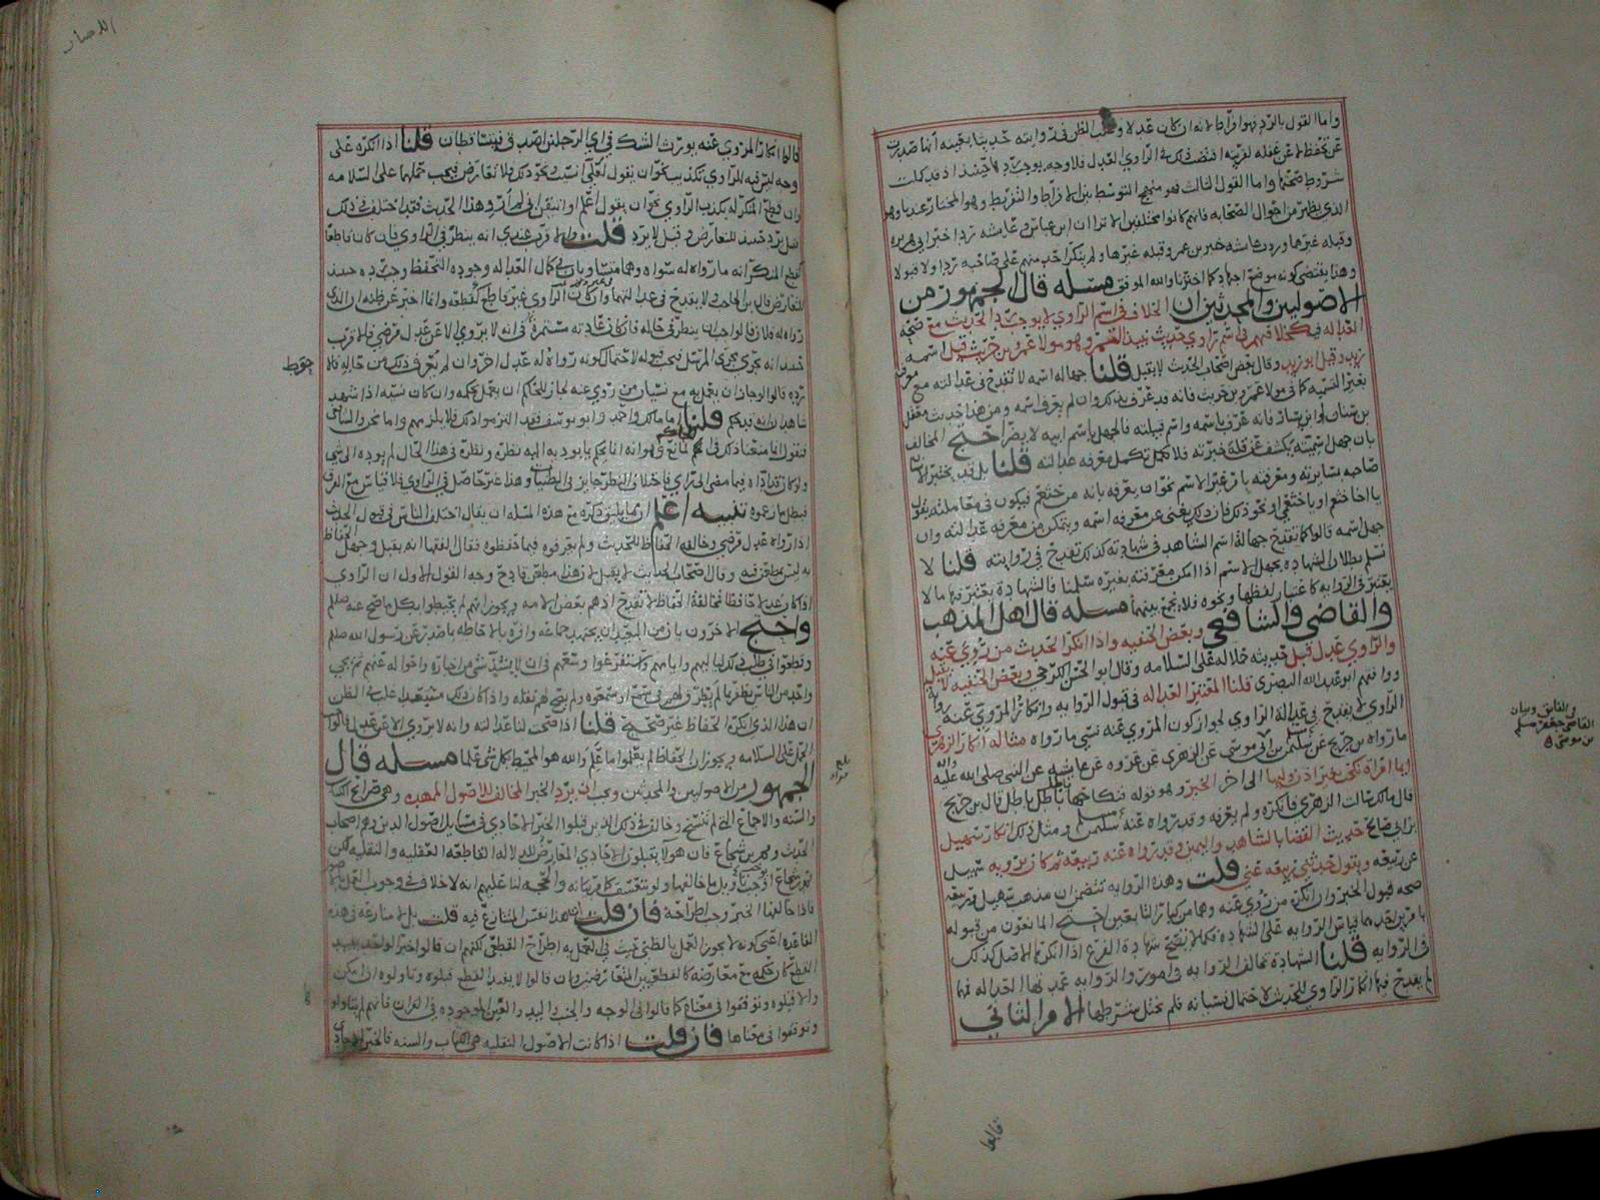 واما القول بالرد فهو افراط لانه ان كان عدلا وغلب الظن في روايته حديثا بعينه انها صدرت
عن تحفظ لا عن غفله لقرينه فنضعف ذلك في الراوي العدل فلا وجه يوجب رده لاجتهاد اذ قد كملت
شروط صحتها واما القول الثالث فهو منهج التوسط بين الافراط والتفريط وهو المختار عندنا وهو
الذي يظهر من احوال الصحابه فانهم كانوا مختلفين الا ترا ان ابن عباس وعايشه ردا خبر ابي هريره
وقبله غيرها وردت عايشه خبر بن عمر وقبله غيرها ولم ينكر احد منهم على صاحبه ردا ولا قبولا
وهذا يقتضي كونه موضع اجتهاد كما اخترنا والله الموفق مسئله قال الجمهور من
الاصوليين والمحدثين ان الخلاف في اسم الراوي لا يوجب رد الحديث مع صحة
العداله فيه كخلافهم في اسم راوي حديث نبيذ التمر وهو مولا عمرو بن حريث قيل اسمه
زيد وقيل ابو زيد وقال بعض اصحاب الحديث لا يقبل قلنا جهالة اسمه لا تقدح في عدالته مع
بغير التسميه كما في مولا عمرو بن حريث فانه قد عرف بذلك وان لم يعرف اسمه ومن هذا حديث معقل
بن سنان او ابن يسار فانه عرف باسمه واسم قبيلته فالجهل باسم ابيه لا يضر احتج المخالف
بان جهل اسميته يكشف عن قلة خبرته فلا تكمل معرفه عدالته قلنا بل قد يختبر
صاحبه بسايرته ومعرفته بان غير الاسم نحو ان يعرفه بانه من خثعم فيكون في معاملته يقول
يا اخا خثعم او يا خثعمي او نحو ذلك فان ذلك يغني عن معرفه اسمه ويتمكن من معرفه عدالته وان
جهل اسمه قالوا كما تقدح جهالة اسم الشاهد في شهادته كذلك تقدح في روايته قلنا لا
نسلم بطلان الشهاده بجهل الاسم اذا امكن معرفته بغيره سلمنا فالشهادة يعتبر فيها ما لا
يعتبر في الروايه كاعتبار لفظها ونحوه فلا جمع بينهما مسئله قال اهل المذهب
والقاضي والشافعي وبعض الحنفيه واذا انكر الحديث من روي عنه
والراوي عدل قبل حديثه حملا له على السلامه وقال ابو الحسن الكرخي وبعض الحنفيه لا يقبل
ووافقهم ابو عبد الله البصري قلنا المعتبر العداله في قبول الروايه وانكار المروي عنه
الراوي لا يقدح في عدالة الراوي لجواز كون المروي عنه نسي ما رواه مثاله انكار الزهري
ما رواه بن جريج عن سليمن بن موسى عن الزهري عن عروه عن عايشه عن النبي صلى الله عليه
ايما امراة نكحت بغير اذن وليها الى اخر الخبر وهو قوله فنكاحها باطل باطل باطل قال بن جريج
قال سالت الزهري فانكره ولم يعرفه وقد رواه عنه سليمن ومثل ذلك انكار سهيل
بن ابي صالح حديث القضا بالشاهد واليمين وقد رواه عنه ربيعه ثم كان يرويه سهيل
عن ربيعه ويقول حدثني ربيعه عني قلت وهذه الروايه تتضمن ان مذهب سهيل وربيعه
صحه قبول الخبر وان انكره من روي عنه وهما من كبار التابعين احتج المانعون من قبوله
بامرين احدهما قياس الروايه على الشهاده فكما لا تصح شهادة الفرع اذا انكرها الاصل كذلك
في الروايه قلنا الشهادة تخالف الروايه في امور والروايه عمدتها العداله فيما
لم يقدح فيها انكار الراوي للحديث لاحتمال نسيانه فلم يختل شرطها الامر الثاني
قالوا
قالوا انكار المروي عنه يورث الشك في اي الرجلين اصدق فيتساقطان قلنا اذا انكره على
وجه ليس فيه للراوي تكذيب نحو ان يقول لعلي انسيت ونحو ذلك فلا تعارض فيجب حملها على السلامه
وان قطع المنكر له بكذب الراوي نحو ان يقول اعلم او اتيقن اني لم اروه هذا الحديث فقد اختلف في ذلك
قيل يرد حينئذ للتعارض وقيل لا يرد قلت والاقرب عندي انه ينظر في الراوي فان كان قاطعا
كقطع المنكر انه ما رواه له سواه وهما متساويان في كمال العداله وجوده التحفظ وجب رده حينئذ
للتعارض قال بن الحاجب ولا يقدح في عدالتهما وان كان الراوي غير قاطع كقطعه وانما اخبر عن ظنه ان الذي
رواه له فلان قالوا جب ان ينظر في حاله فان كان عادته مستمرة في انه لا يروي الا عن عدل مرضي فالاقرب
حينئذ انه يجري مجرى المرسل فيجب قبوله لاحتمال كونه رواه له عدل اخر وان لم يعرف ذلك من حاله فلا
ترده قالوا لو جاز ان يعمل به مع نسيان من روي عنه لجاز للحاكم ان يعمل بحكمه وان كان نسيه اذا شهد
شاهدان انه حكم قلنا اما مالك واحمد وابو يوسف فقد التزموا ذلك فلا يلزمهم واما نحن والشافعي
فنقول انما منعنا ذلك في الحاكم لمانع وهو انه انما يحكم بما يودي اليه نظره ونظره في هذا الحال لم يوده الى شي
ولو كان قد اداه فيما مضى الى راي فاختلاف النظر جايز في الظنيات وهذا غير حاصل في الراوي فلا قياس مع الفرق
فبطل ما زعموه تنبيه اعلم ان مما يليق ذكره مع هذه المسئله ان يقال اختلف الناس في قبول الحديث
اذا رواه عدل مرضي وخالفه الحفاظ للحديث ولم يعرفوه فيما حفظوه فقال الفقها انه يقبل وجهل الحفاظ
به ليس بمطعن فيه وقال اصحاب الحديث لا يقبل اذ هذا مطعن قادح وجه القول الاول ان الراوي
اذا كان عدلا حافظا فمخالفة الحفاظ لا تقدح اذ هم بعض الامه ويجوز انهم لم يحيطوا بكل ما صح عنه صلعم
واحتج الاخرون بان من البعيد ان يجتهد جماعه وافره بالاحاطه بما صدر عن رسول الله صلعم
وقطعوا في طلب ذلك لياليهم وايامهم واستفرغوا وسعهم في ان لا يشذ شي من اخباره واحواله عنهم ثم يجي
واحد من الناس يظفر بما لم يظفروا به في سماع او سمعوه ولم يصح لهم نقله واذا كان ذلك مستبعدا غلب الظن
ان هذا الذي انكره الحفاظ غير صحيح قلنا اذا صحت لنا عدالته وانه لا يروي الا عن عدل قالوا
الحمل على السلامه ويجوز ان الحفاظ لم يعلموا ما علم والله هو المحيط بكل شي علما مسئله قال
الجمهور من الاصوليين والمحدثين ويجب ان يرد الخبر المخالف للاصول الممهده وهي صرايح الكتاب
والسنه والاجماع التي لم تنسخ وخالف في ذلك الذين قبلوا الخبر الاحادي في مسايل اصول الدين وهم اصحاب
الحديث ومحمد بن شجاع فان هولا يقبلون الاحادي المعارض للدلاله القاطعه العقليه والنقليه لكن
محمد بن شجاع اوجب تاويل ما خالفها ولو بتعسف كما مر بيانه والحجه لنا عليهم انه لا خلاف في وجوب العمل
فاذا خالفها الخبر وجب اطراحه فان قلت ان هذا نفس المتنازع فيه قلت بل لا منازعه في هذه
القاعده اعني كونه لا يجوز العمل بالظني حيث في العمل به اطراح القطعي لكنهم ان قالوا خبر الواحد يفيد
القطع كان حكمه مع معارضه كالقطعيين المتعارضين وان قالوا لا يفيد القطع قبلوه وتاولوه اذا امكن
والا قبلوه وتوقفوا في معناه كما قالوا في الوجه والجنب واليد والعين الموجوده في القران فانهم لم يتاولوا
وتوقفوا في معناها فان قلت اذا كانت الاصول النقليه هي الكتاب والسنه فالخبر الاحادي